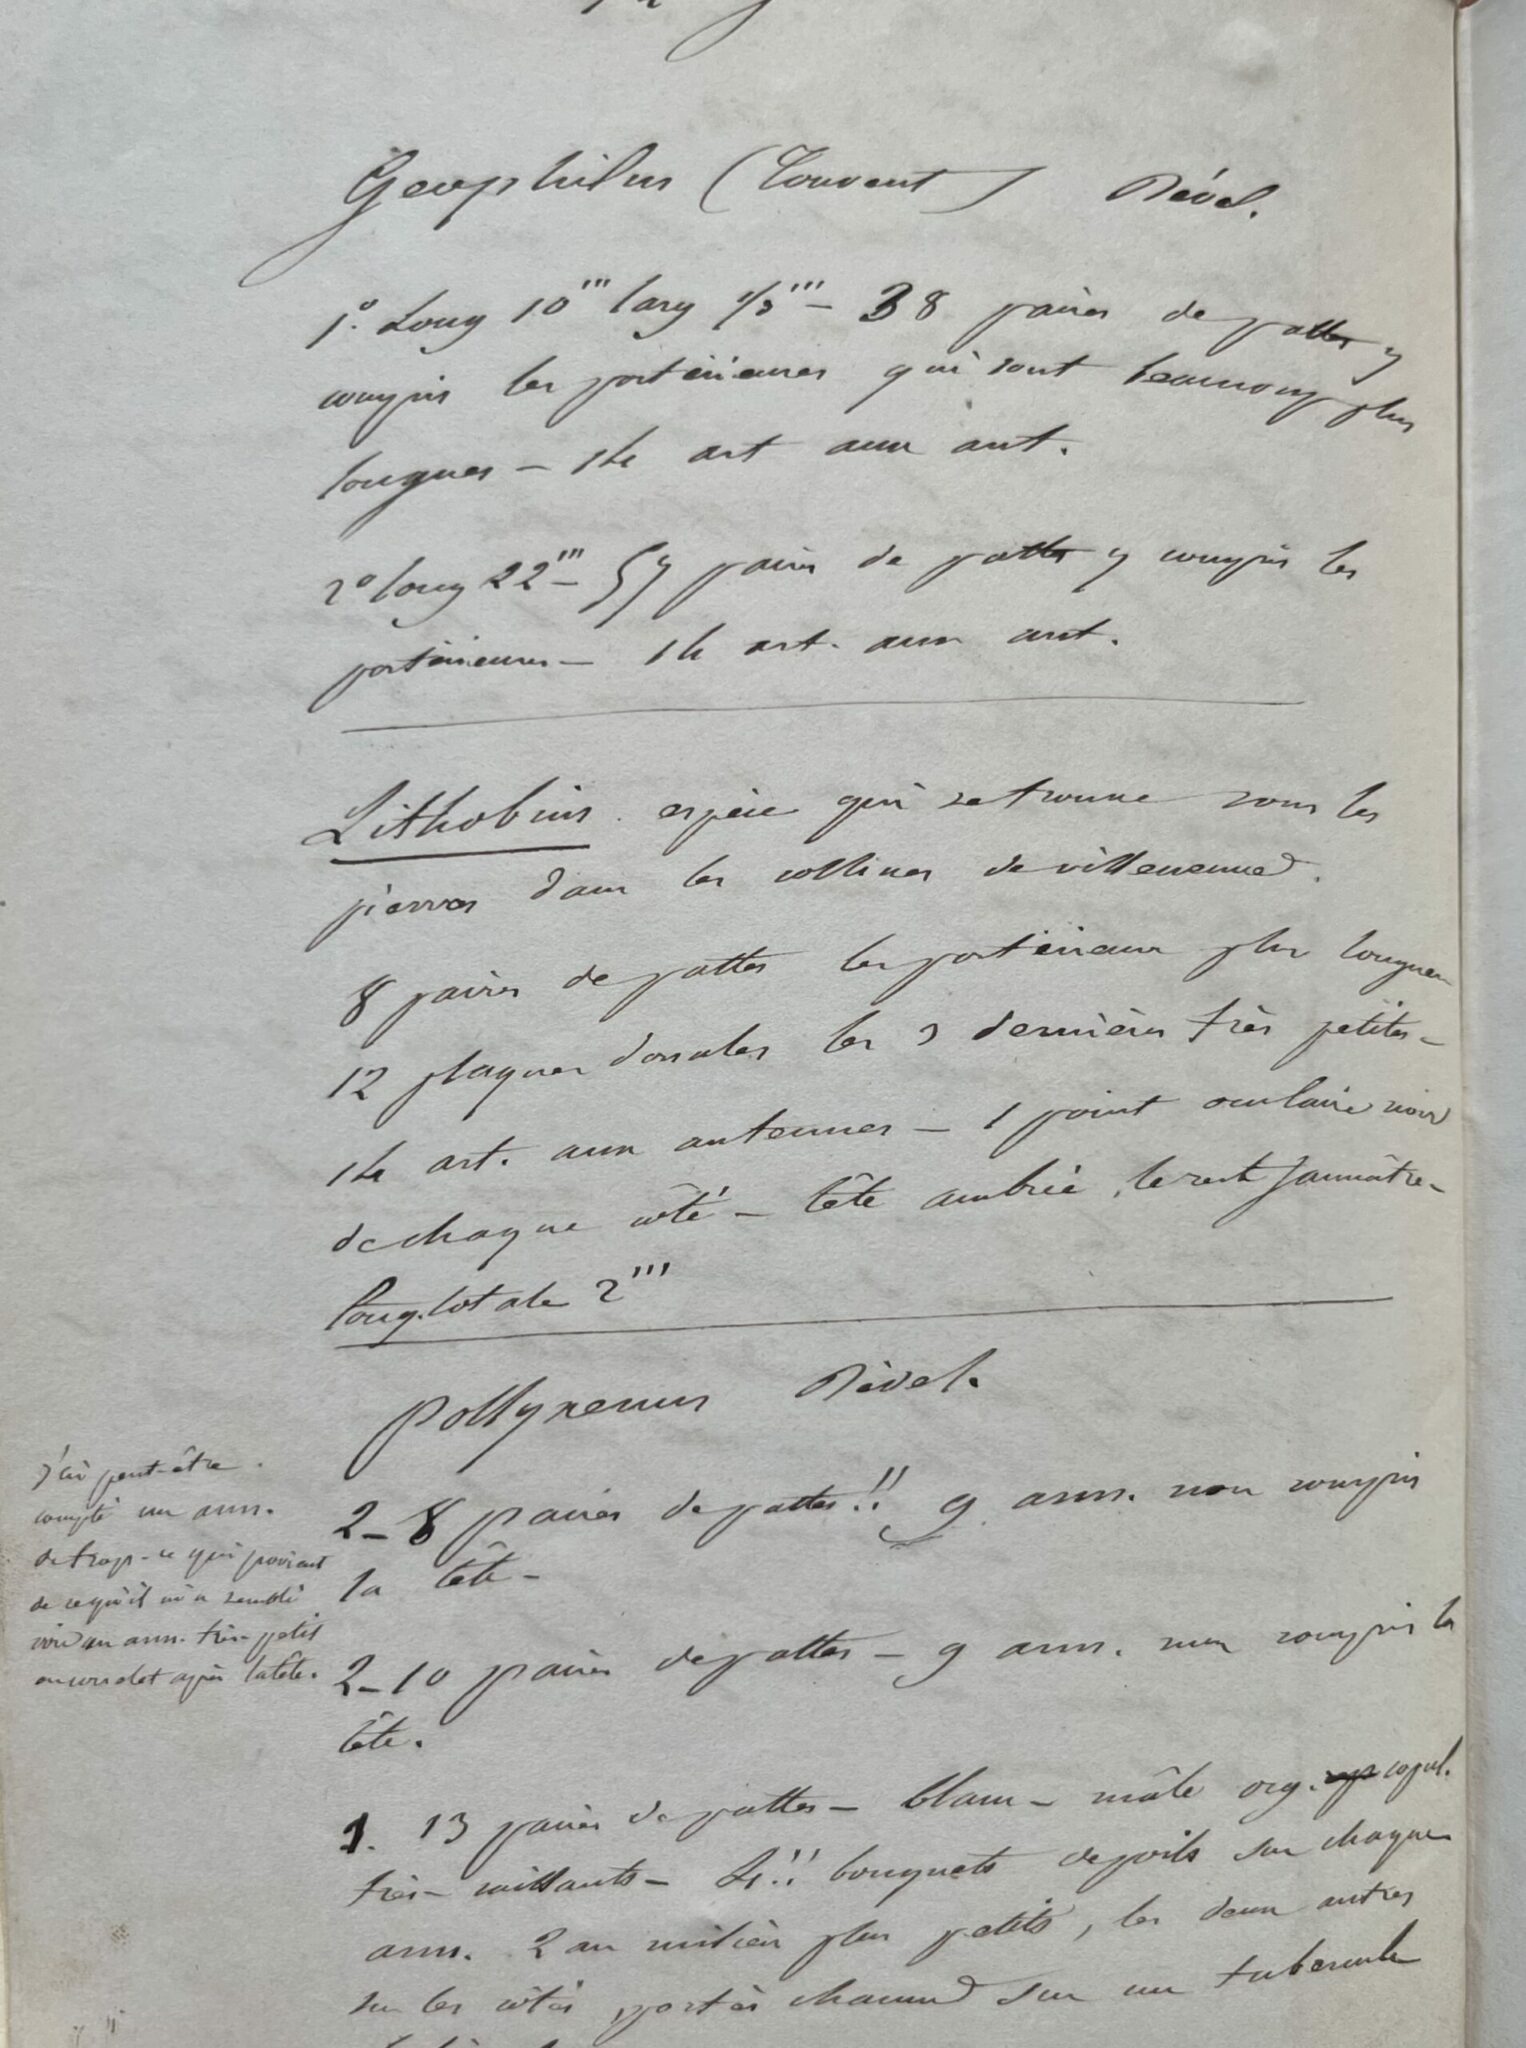 Geophilus (Couvent) Rével.
1°. Long 10''' larg 1/3''' – 38 paires de pattes y
compris les postérieures qui sont beaucoup plus
longues – 14 art aux ant.
2° long 22''' – 57 paires de pattes y compris les
postérieures – 14 art. aux ant.
Lithobius. espèce qui se trouve sous les
pierres dans les collines de villeneuve.
8 paires de pattes les postérieures plus longues
12 plaques dorsales les 3 dernières très petites –
14 art. aux antennes – 1 point oculaire noir
de chaque côté – tête ambrée, le reste jaunâtre –
long. totale 2'''
Pollyxenus Révél.
2 – 8 paires de pattes!! 9 ann. non compris
la tête –
2 – 10 paires de pattes – 9 ann. non compris la
tête.
1. 13 paires de pattes – blanc – mâle org. copul.
très-saillants – 4!! bouquets de poils sur chaque
ann. 2 au milieu plus petits, les deux autres
sur les côtés portés chacun sur un tubercule
j'ai peut-être
compté un ann.
de trop – ce qui provient
de ce qu'il m'a semblé
voir un ann. très petit
ou corselet après la tête.